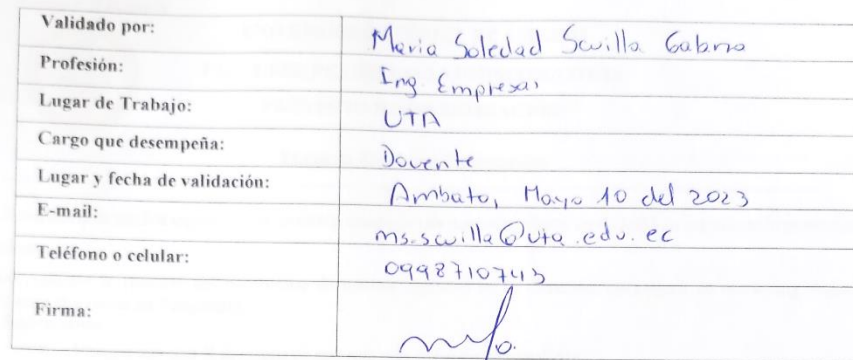 Validado por: Maria Soledad Sevilla
Profesión: Ing. Empresas
Lugar de Trabajo: UTA
Cargo que desempeña: Docente
Lugar y fecha de validación: Ambato, Mayo 10 del 2023
E-mail: ms.sevilla@uta.edu.ec
Teléfono o celular:
Firma: